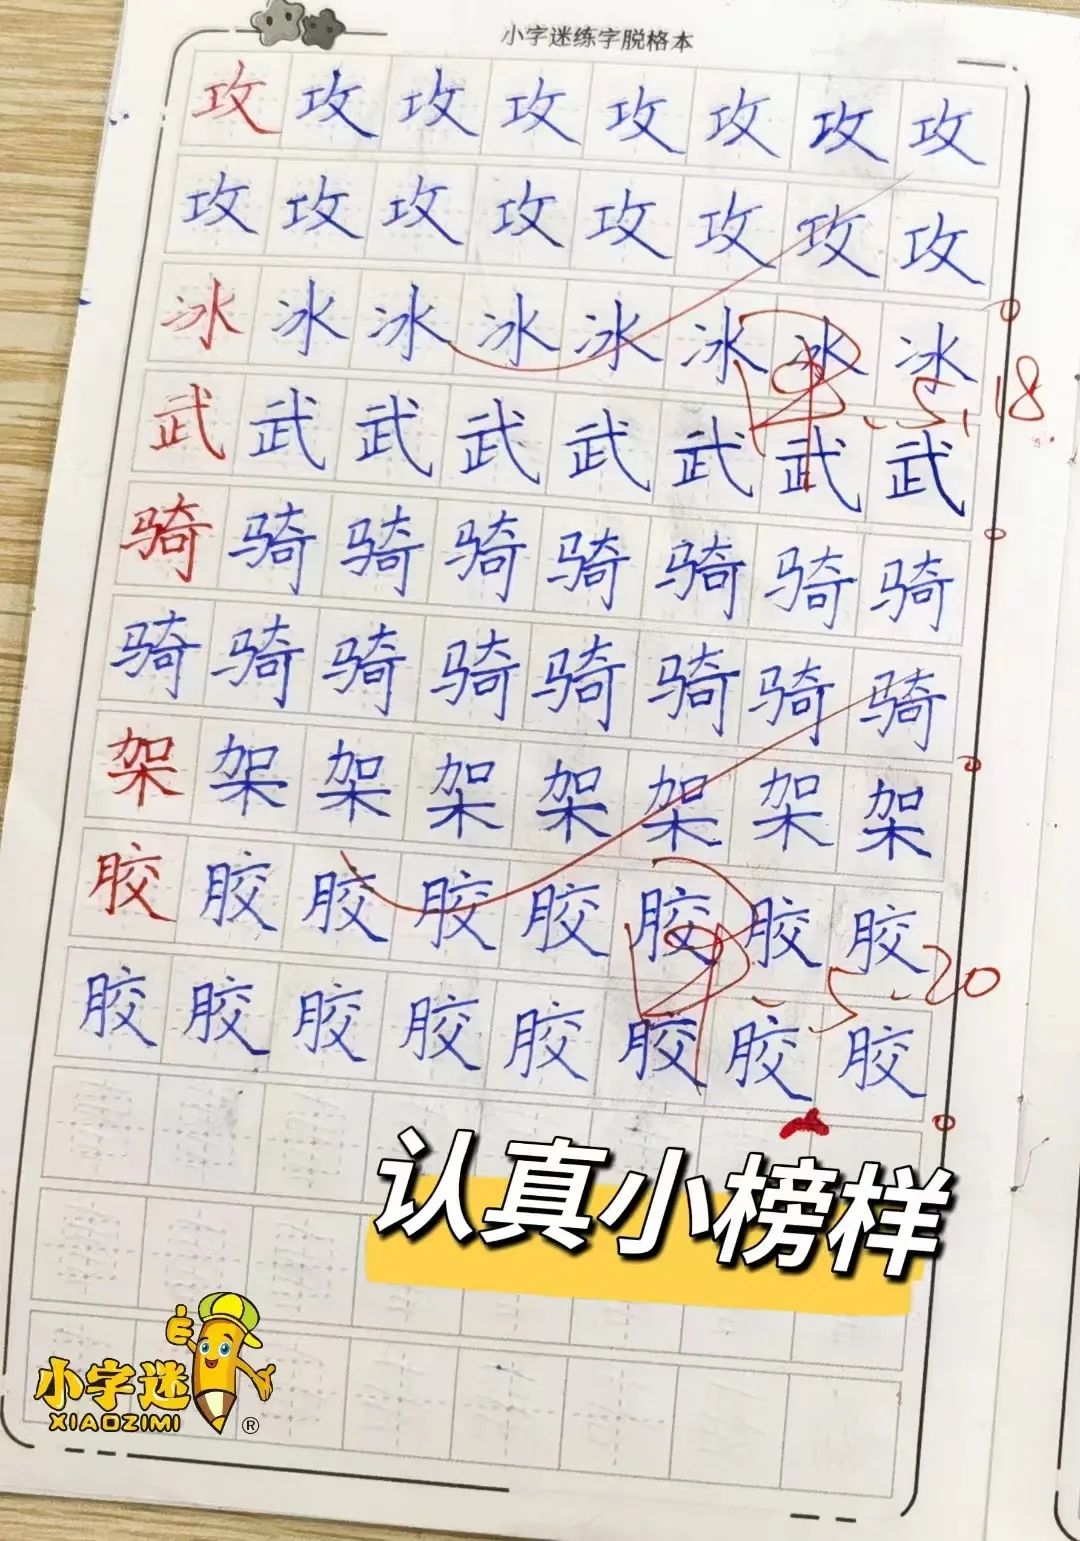 小字迷练字脱格本
攻攻攻攻攻攻攻攻
攻攻攻攻攻攻攻攻
冰冰冰冰冰冰冰冰
5.18
武武武武武武武武
骑骑骑骑骑骑骑骑
骑骑骑骑骑骑骑骑
架架架架架架架架
胶胶胶胶胶胶胶胶
5.20
胶胶胶胶胶胶胶胶
认真小榜样
小字迷
XIAOZIMI
®